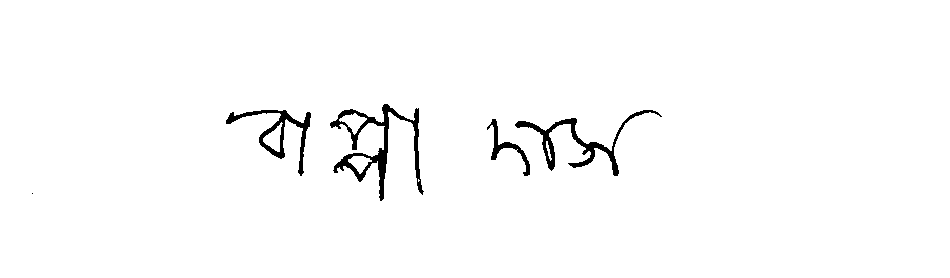 বাপ্পা দাস